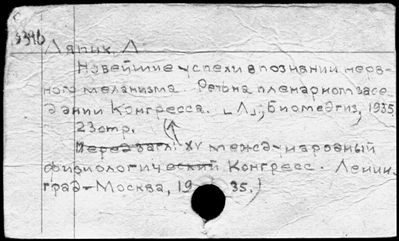 3346
Ляпик, Л.
Новейшие успехи в познании нерв-
ного механизма. Речь на пленарном засе-
дании Конгресса. Л., Биомедгиз, 1935
23 стр.
Перед загл: XV междунаровный
физиологический Конгресс. Ленин-
град-Москва, 1935.)